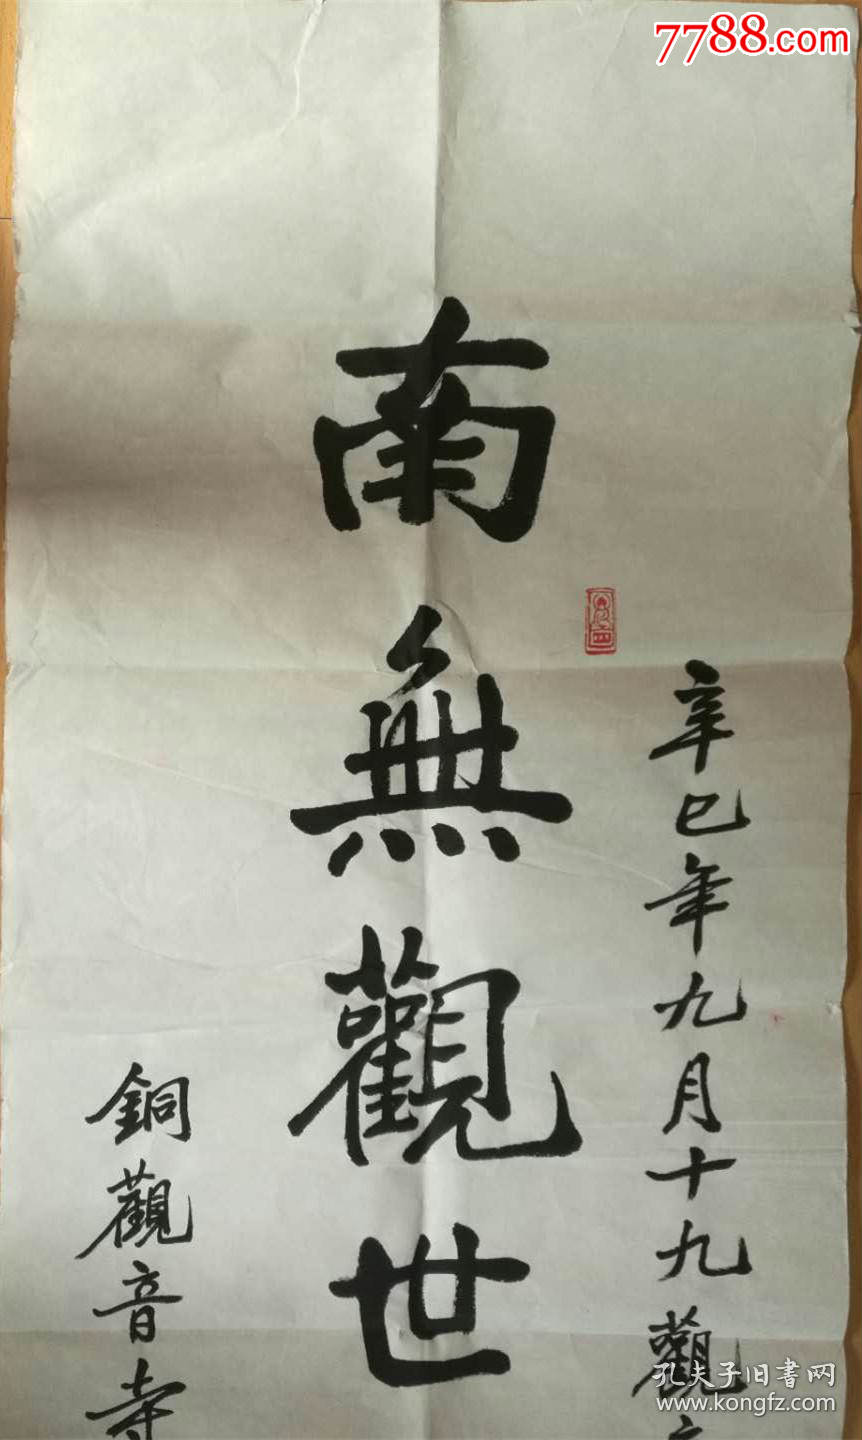 7788.com
辛巳年九月十九觀
南無觀世
銅觀音寺
孔夫子旧书网
www.kongfz.com